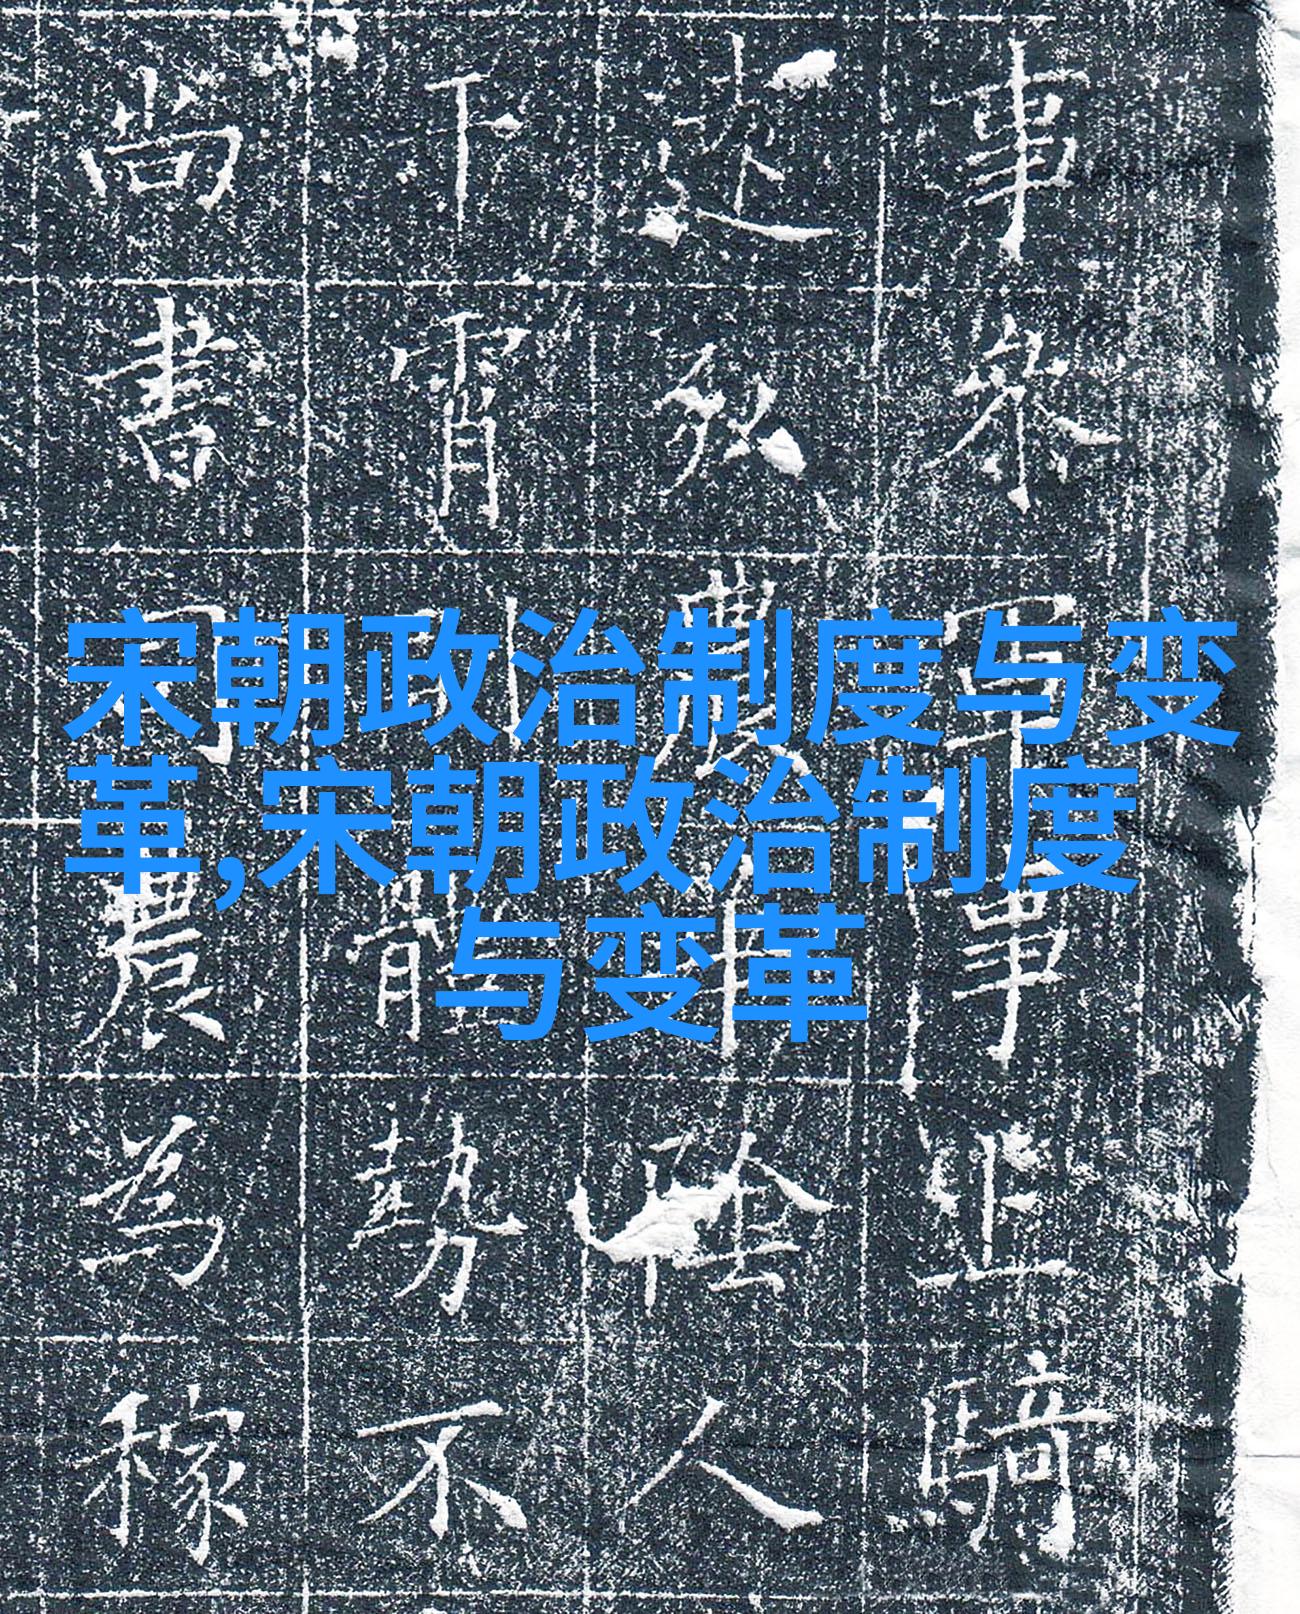 宋朝政治制度与变
革,宋朝政治制度
与变革
事衆軍事騎
於農陰人
下霄體勢不
尚書司農為稼